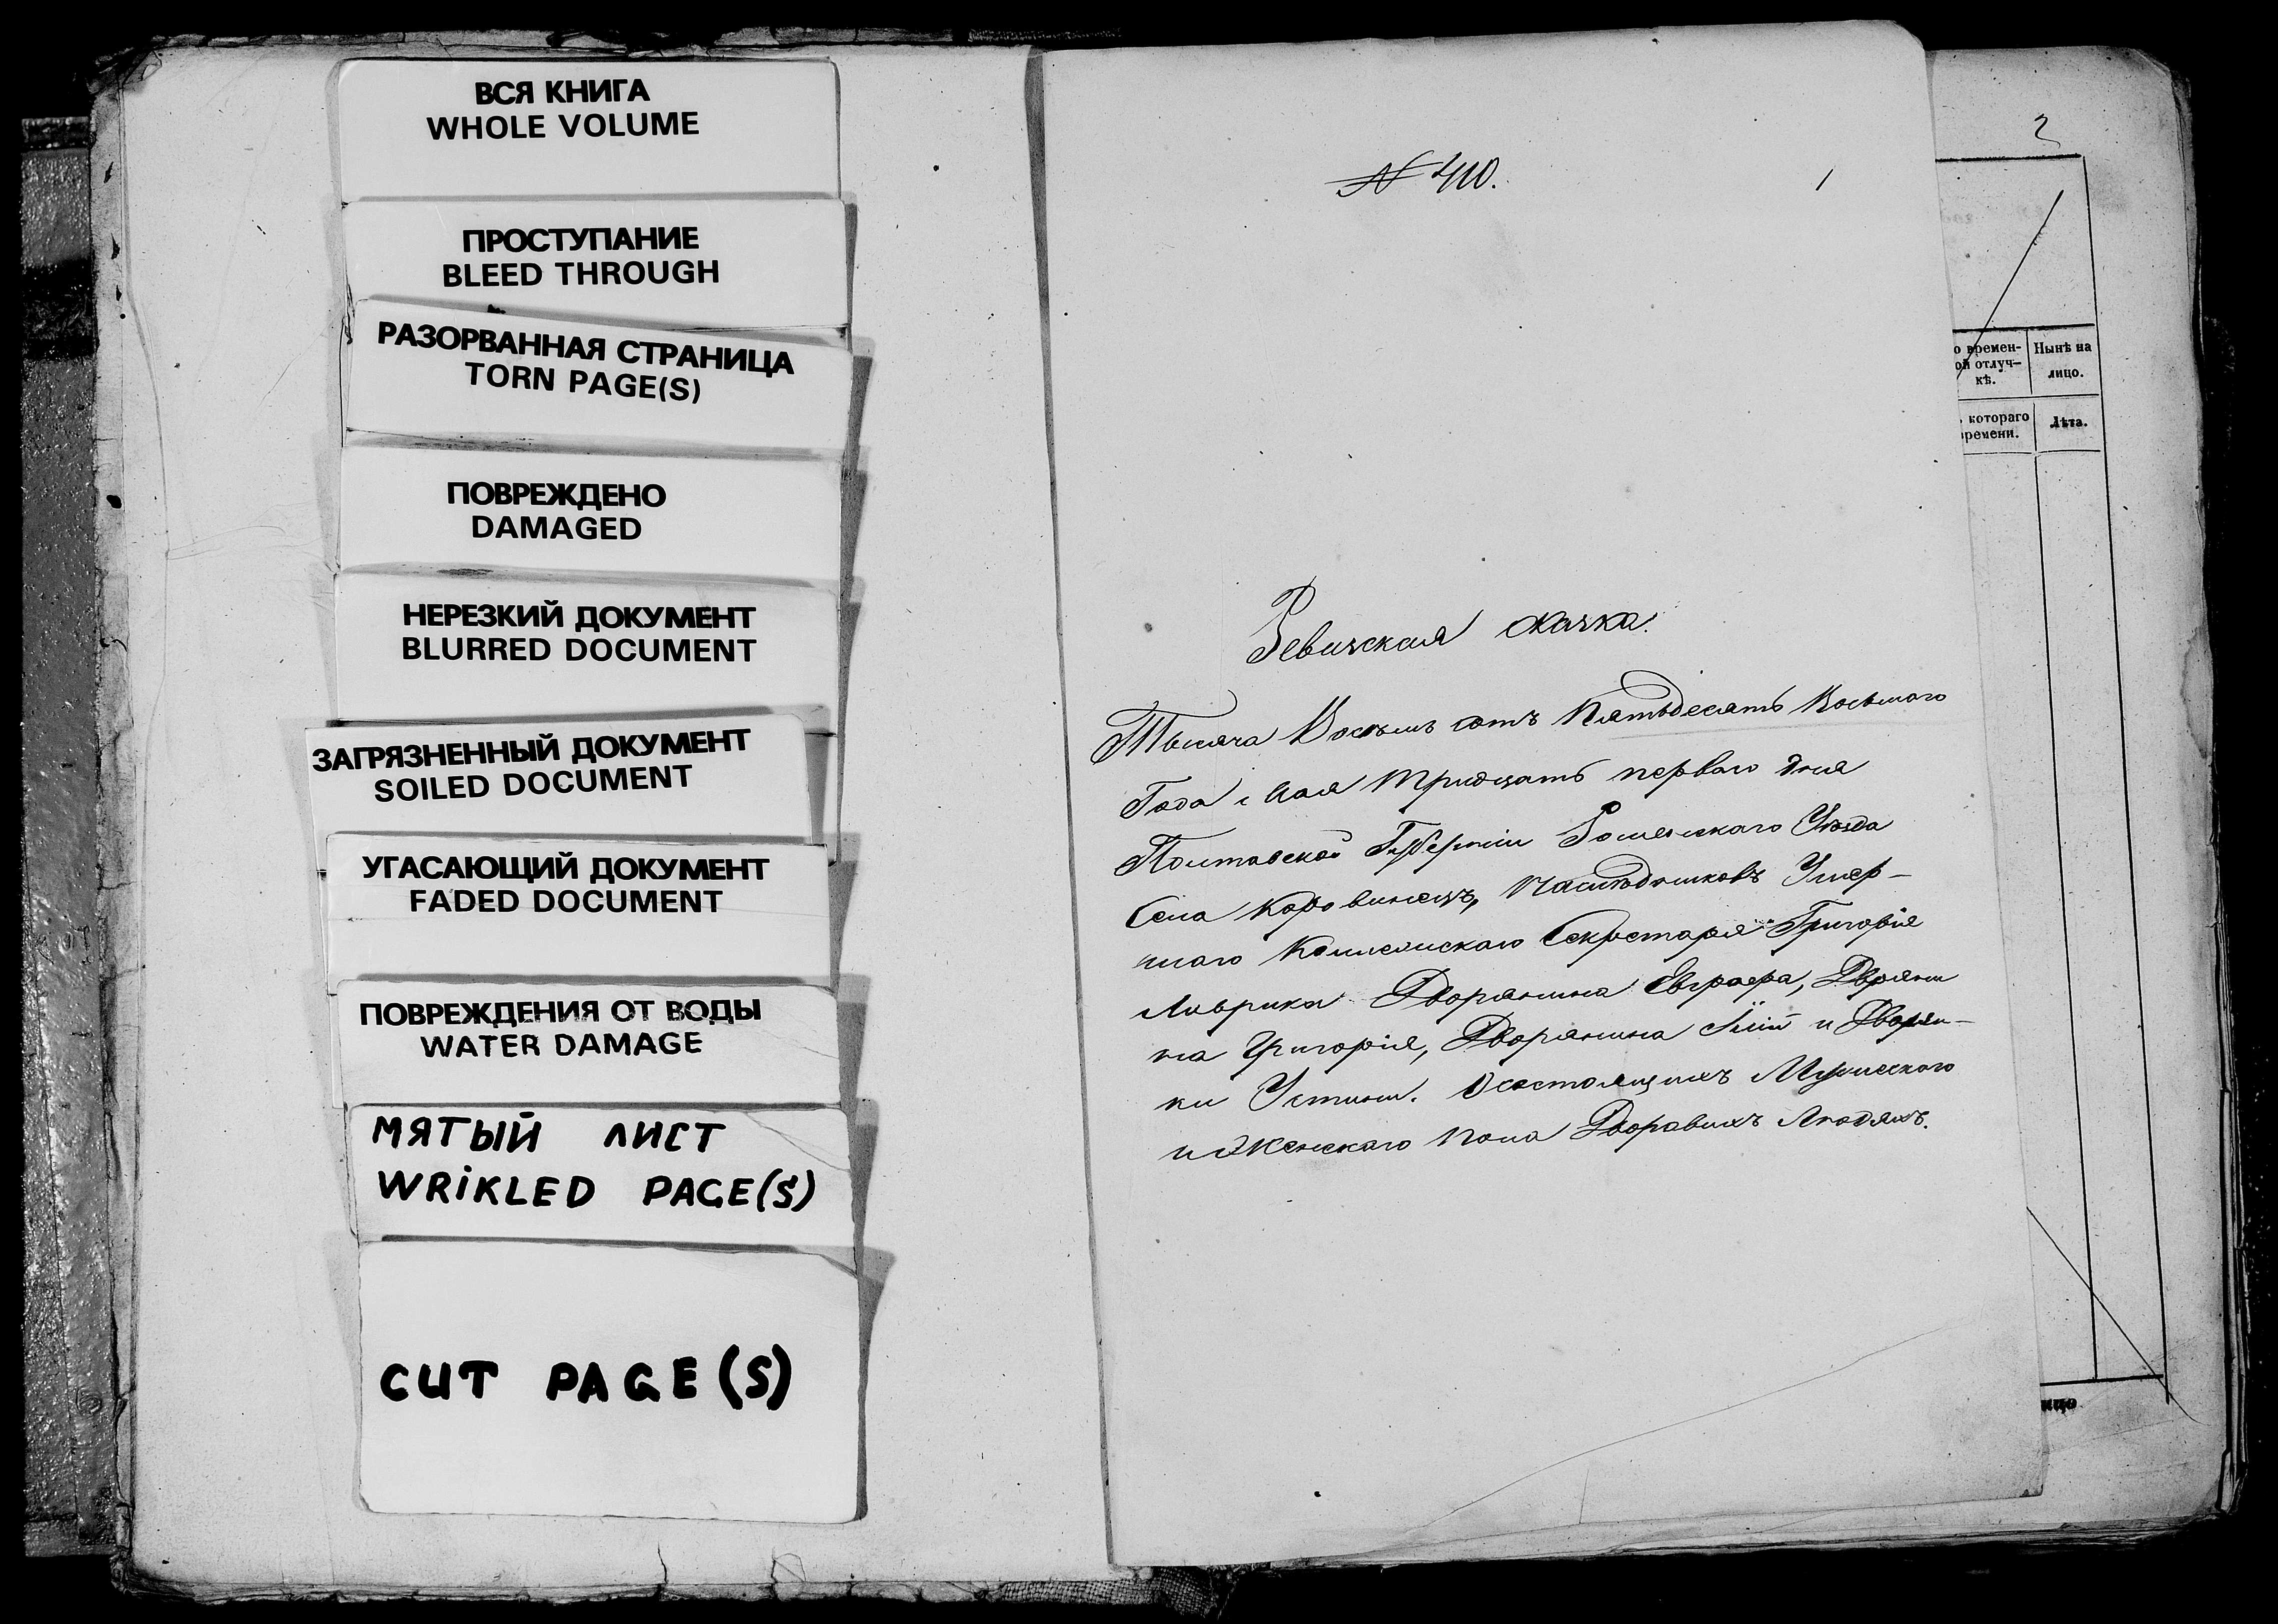 ВСЯ КНИГА
WHOLE VOLUME
ПРОСТУПАНИЕ
BLEED THROUGH
РАЗОРВАННАЯ СТРАНИЦА
TORN PAGE(S)
ПОВРЕЖДЕНО
DAMAGED
НЕРЕЗКИЙ ДОКУМЕНТ
BLURRED DOCUMENT
ЗАГРЯЗНЕННЫЙ ДОКУМЕНТ
SOILED DOCUMENT
УГАСАЮЩИЙ ДОКУМЕНТ
FADED DOCUMENT
ПОВРЕЖДЕНИЯ ОТ ВОДЫ
WATER DAMAGE
МЯТЫЙ ЛИСТ
WRIKLED PAGE(S)
CUT PAGE(S)
№ 410.
1
Ревизская сказка.
Тысяча Восемь сотъ Пятьдесятъ Восьмого
Года Мая Тридцать перваго дня
Полтавской Губерніи Роменскаго Уѣзда
Села Коровинецъ, Наслѣдниковъ Умер-
шаго Коллежскаго Секретаря Григорія
Лаврика Дворянина Евграфа, Дворяни
на Григорія, Дворянина и Дворян-
ки Устиньи. О состоящихъ Мужескаго
и Женскаго пола Дворовыхъ Людяхъ.
2
о времен- Нынѣ на
ой отлуч- лицо.
кѣ.
котораго Лѣта.
времени.